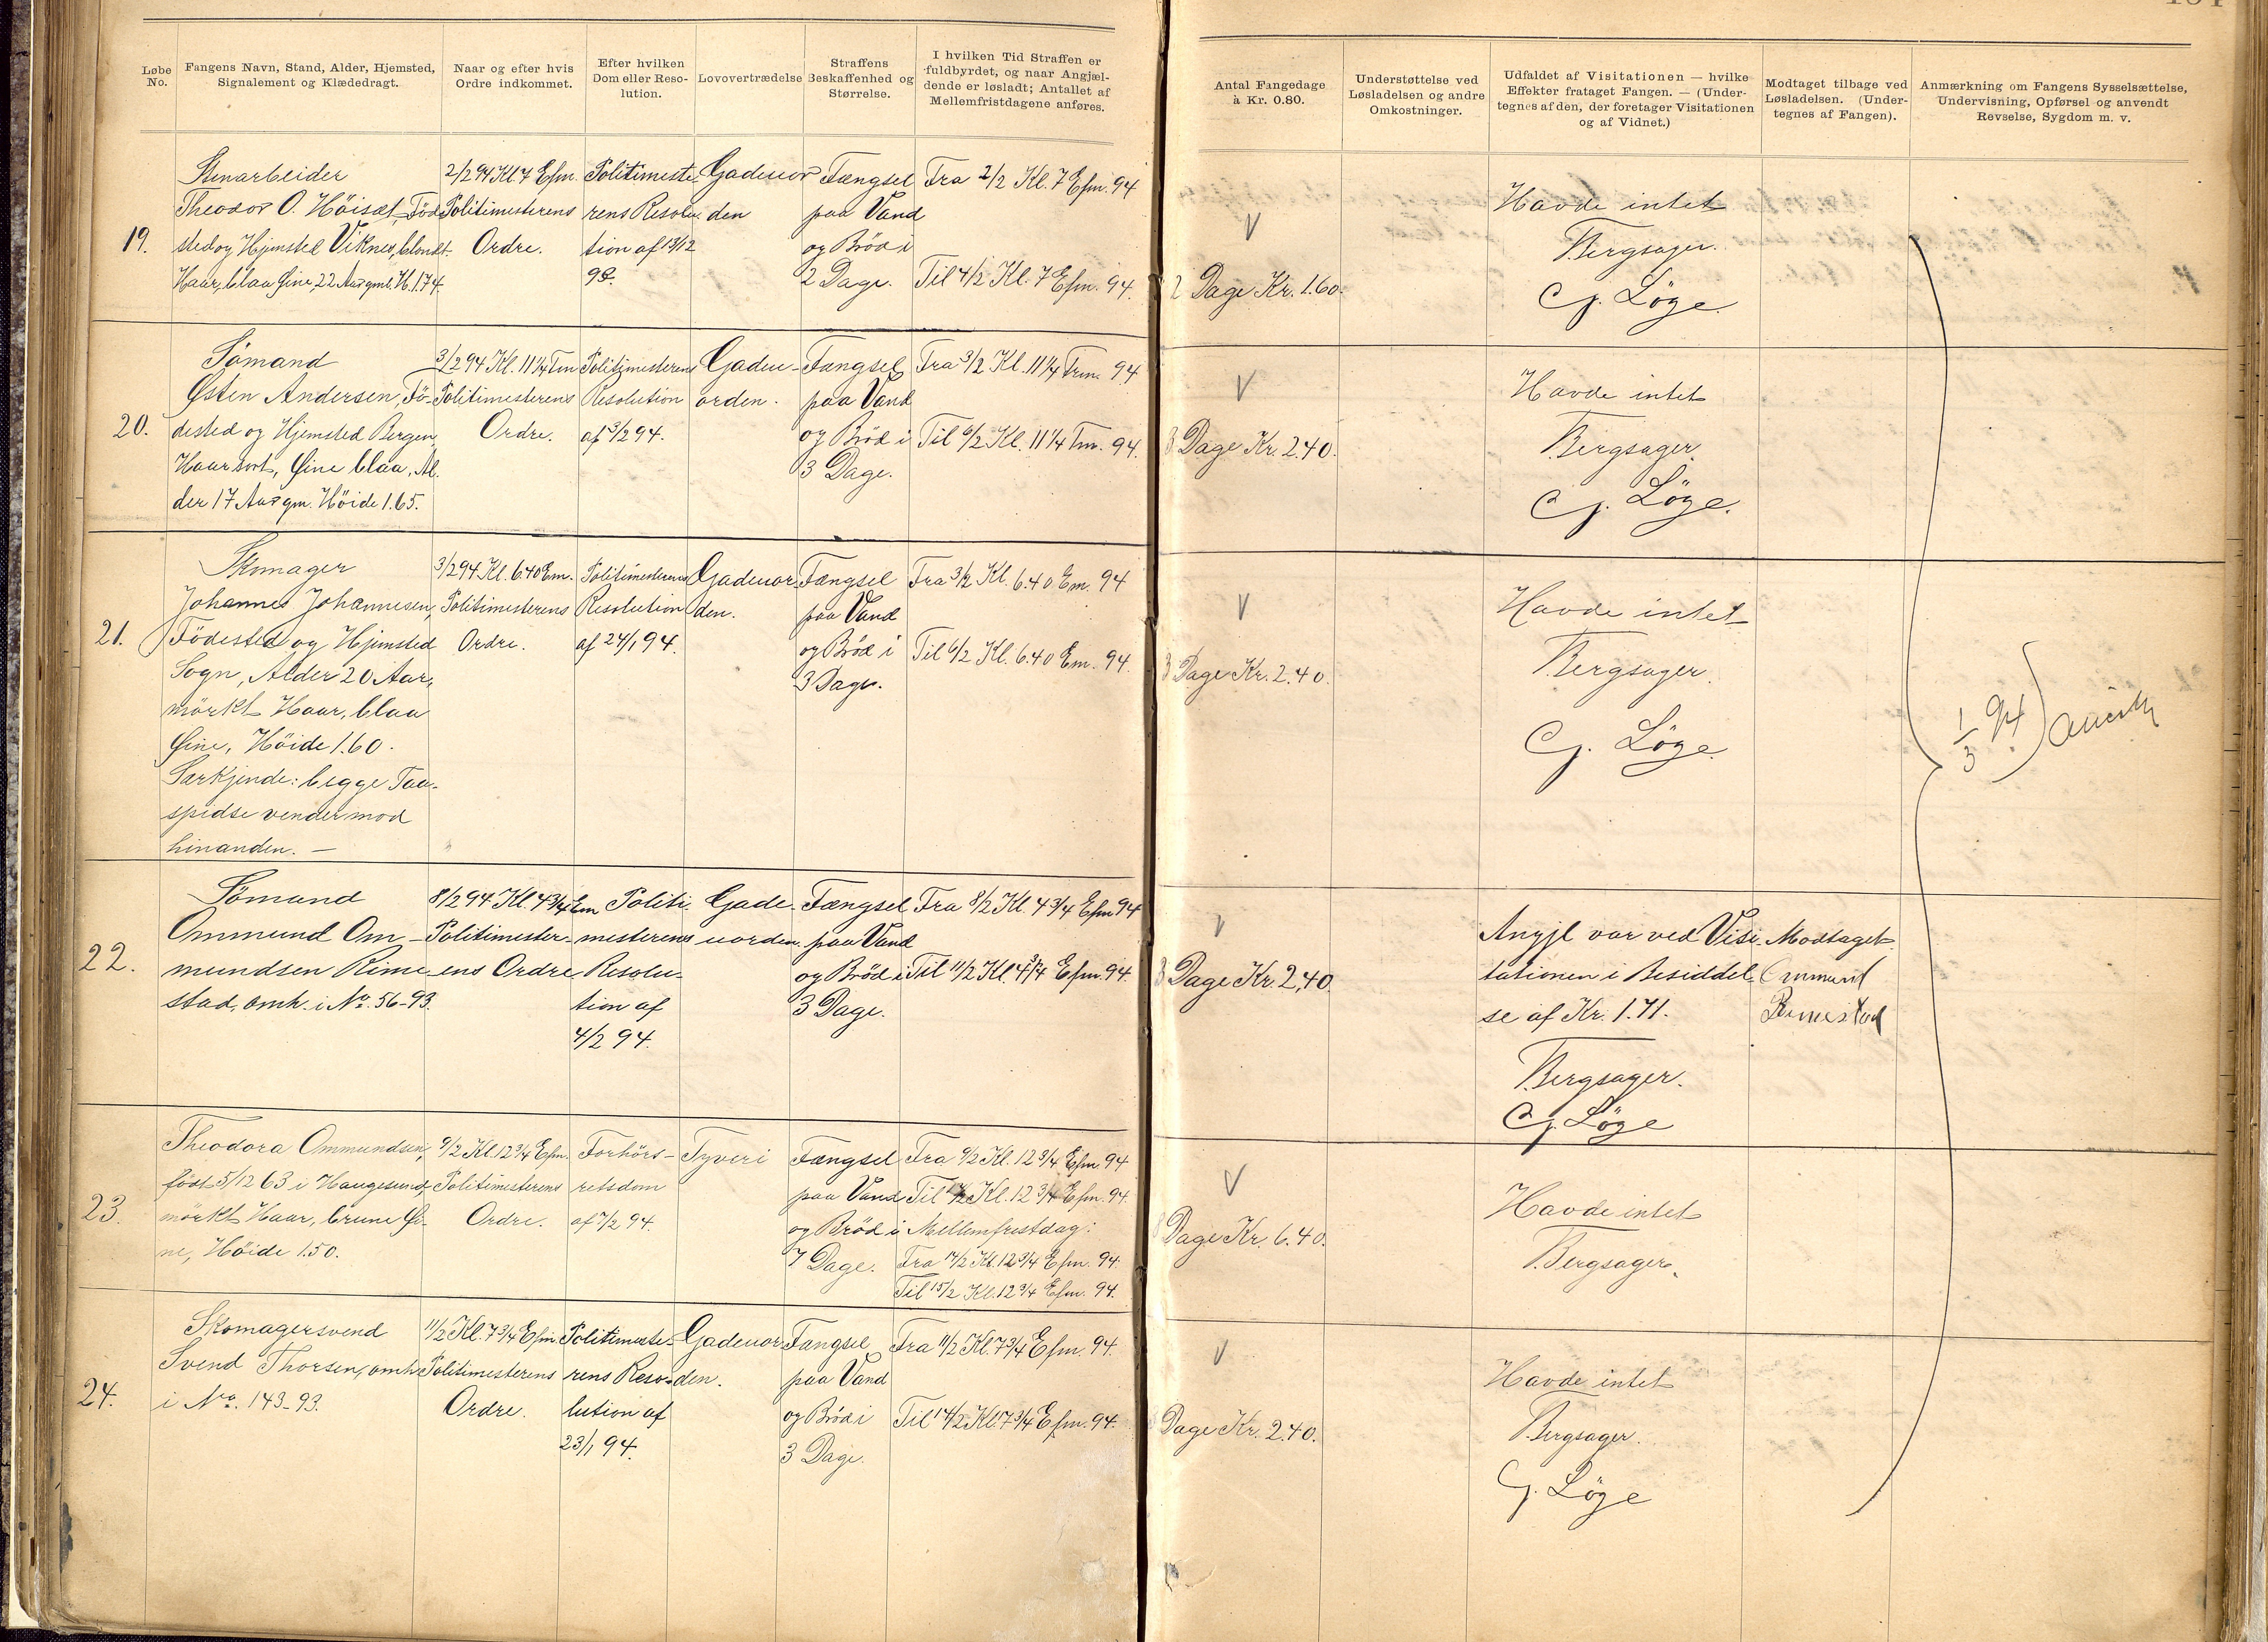 Løbe No.
Fangens Navn, Stand, Alder, Hjemsted, Signalement og Klædedragt.
Naar og efter hvis Ordre indkommet.
Efter hvilken Dom eller Resolution.
Lovovertrædelse
Straffens Beskaffenhed og Størrelse.
I hvilken Tid Straffen er fuldbyrdet, og naar Angjældende er løsladt; Antallet af Mellemfristdagene anføres.
Antal Fangedage à Kr. 0.80.
Understøttelse ved Løsladelsen og andre Omkostninger.
Udfaldet af Visitationen — hvilke Effekter frataget Fangen. — (Undertegnes af den, der foretager Visitationen og af Vidnet.)
Modtaget tilbage ved Løsladelsen. (Undertegnes af Fangen).
Anmærkning om Fangens Sysselsættelse, Undervisning, Opførsel og anvendt Revselse, Sygdom m. v.
19.
Stenarbeider
Theodor O. Höisæt, Föd-
sted og Hjemsted Viknes, blondt
Haar, blaa Øine, 22 Aar gml. H. 1.74.
2/2 94 Kl. 7 Efm.
Politimesterens
Ordre.
Politimeste-
rens Resolu-
tion af 13/12
93.
Gadeuor
den
Fængsel
paa Vand
og Bröd i
2 Dage.
Fra 2/2 Kl. 7 Efm. 94
Til 4/2 Kl. 7 Efm. 94.
V
2 Dage Kr. 1.60.
Havde intet
Bergsager.
G. Löge.
20.
Sömand
Østen Andersen, Fö-
dested og Hjemsted Bergen,
Haar sort, Øine blaa, Al-
der 17 Aar gm. Höide 1.65.
3/2 94 Kl. 11 1/4 Fm
Politimesterens
Ordre.
Politimesterens
Resolution
af 3/2 94.
Gadeu-
orden.
Fængsel
paa Vand
og Bröd i
3 Dage.
Fra 3/2 Kl. 11 1/4 Frm. 94
Til 6/2 Kl. 11 1/4 Fm. 94.
V
3 Dage Kr. 2.40.
Havde intet
Bergsager.
G. Löge.
21.
Skomager
Johannes Johannesen,
Födested og Hjemsted
Sogn, Alder 20 Aar,
mörkt Haar, blaa
Øine, Höide 1.60.
Særkjende: begge Taa-
spidse vender mod
hinanden. —
3/2 94 Kl. 6.40 Em.
Politimesterens
Ordre.
Politimesterens
Resolution
af 24/1 94.
Gadeuor
den.
Fængsel
paa Vand
og Bröd i
3 Dage.
Fra 3/2 Kl. 6.40 Em. 94
Til 6/2 Kl. 6.40 Em. 94.
V
3 Dage Kr. 2.40.
Havde intet
Bergsager.
G. Löge.
1/3 94
22.
Sömand
Ommund Om-
mundsen Rime
stad, omh. i No. 56-93.
8/2 94 Kl. 4 3/4 Em
Politimester-
ens Ordre
Politi-
mesterens
Resolu-
tion af
4/2 94.
Gade-
uorden.
Fængsel
paa Vand
og Bröd i
3 Dage.
Fra 8/2 Kl. 4 3/4 Efm 94
Til 11/2 Kl. 4 3/4 Efm. 94.
V
3 Dage Kr. 2,40.
Angjl. var ved Visi-
tationen i Besiddel-
se af Kr. 1.71.
Bergsager.
G. Löge
Modtaget
Ommund
Rimestad
23.
Theodora Ommundsen,
född 5/12 63 i Haugesund,
mörkt Haar, brune Øi-
ne, Höide 1.50.
9/2 Kl. 12 3/4 Efm.
Politimesterens
Ordre.
Forhörs-
retsdom
af 7/2 94.
Tyveri
Fængsel
paa Vand
og Bröd i
7 Dage.
Fra 9/2 Kl. 12 3/4 Efm. 94
Til Kl. 12 3/4 Efm. 94.
Mellemfristdag:
Fra 14/2 Kl. 12 3/4 Efm. 94.
Til 15/2 Kl. 12 3/4 Efm. 94.
V
8 Dage Kr. 6.40.
Havde intet
Bergsager.
24.
Skomagersvend
Svend Thorsen, omh.
i No. 143-93.
11/2 Kl. 7 3/4 Efm
Politimesterens
Ordre.
Politimeste-
rens Reso-
lution af
23/1 94.
Gadeuor
den.
Fængsel
paa Vand
og Bröd i
3 Dage.
Fra 11/2 Kl. 7 3/4 Efm. 94.
Til 14/2 Kl. 7 3/4 Efm. 94.
V
Dage Kr. 2.40.
Havde intet
Bergsager.
G. Löge